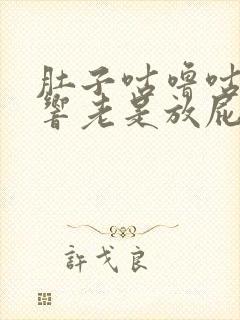 肚子咕噜咕
响老是放屁
許戈良